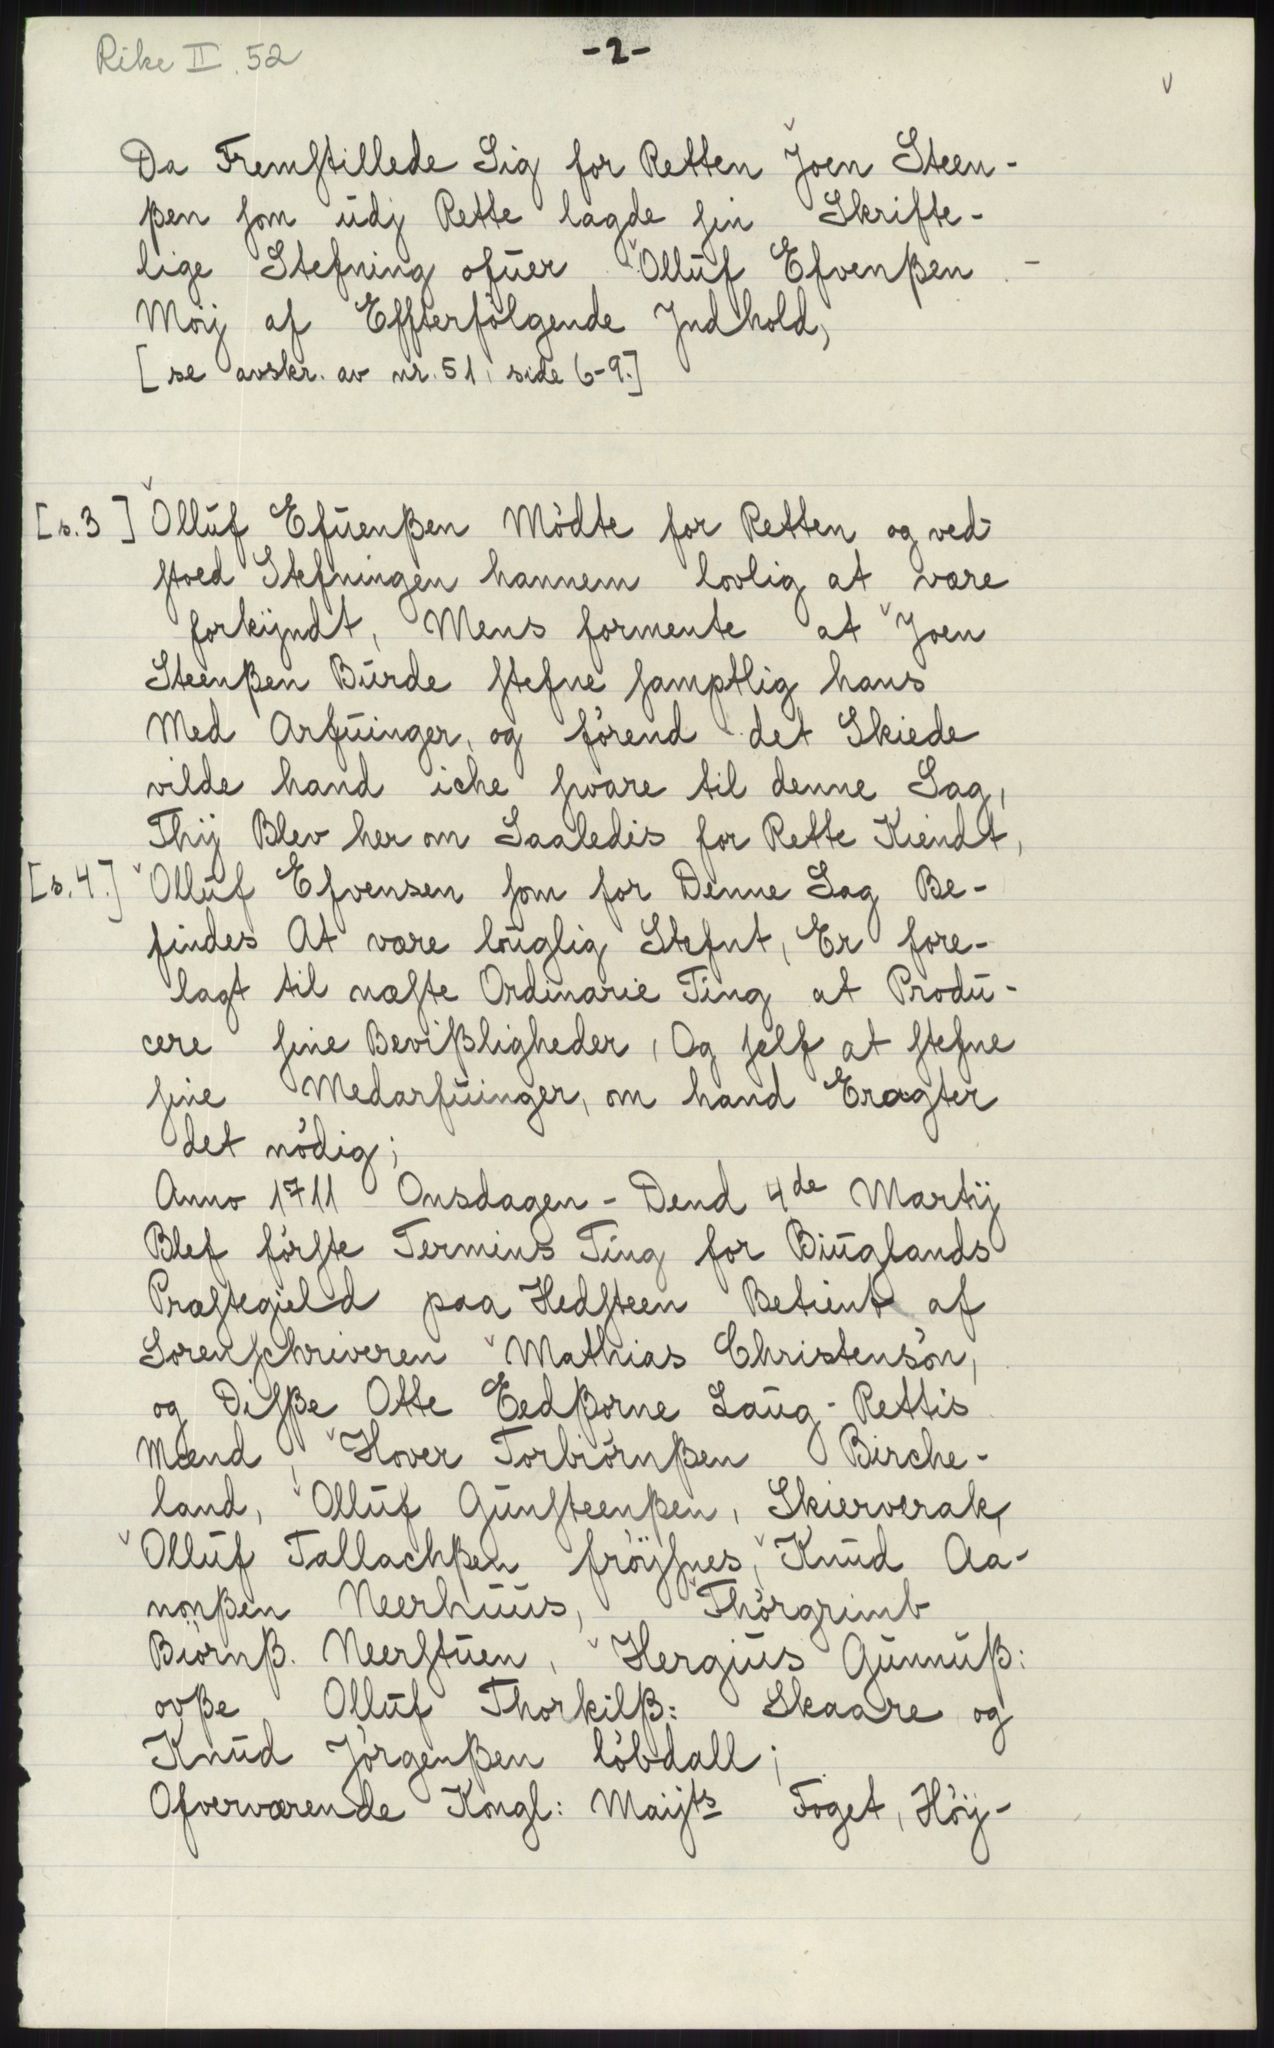 Rike II. 52
-2-
Da Fremstillede Sig for Retten Joen Steen-
ßen som udj Rette lagde sin Skrifte-
lige Stefning ofuer Olluf Efvenßen -
Moij af Effterfølgende Jndhold,
[se avskr. av nr. 51, side 6-9.]
[s.3] Olluf Efuenßen Mødte for Retten og ved-
stoed Stefningen hannem lovlig at være
forkijndt, Mens formente at Joen
Steenßen Burde stefne samptlig hans
Med Arfuinger, og førend det Skiede
vilde hand iche svare til denne Sag,
Thij Blev her om Saaledis for Rette Kiendt,
[s.4.] Olluf Efvensen som for Denne Sag Be-
findes At være louglig Stefnt, Er fore-
lagt til næste Ordinarie Ting at Produ-
cere sine Bevißligheder, Og self at stefne
sine Medarfuinger, om hand Eragter
det nødig;
Anno 1711 Onsdagen - Dend 4de Martij
Blef første Termins Ting for Biuglands
Præstegield paa Hedsteen Betient af
Sorenschriveren Mathias Christensøn,
og Disße Otte Eedßorne Laug-Rettis
Mænd, Hover Torbiørnßen Birche-
land, Olluf Gunsteenßen, Skierverak,
Olluf Tallachßen frøysnes, Knud Aa-
nonßen Neerhuus, Thørgrimb
Biørnß. Neerstuen, Hergius Gunnuß:
ovße Olluf Thorkilß: Skaare og
Knud Jørgenßen løbdall;
Ofverværende Kongl: Maijts Foget, Høy-